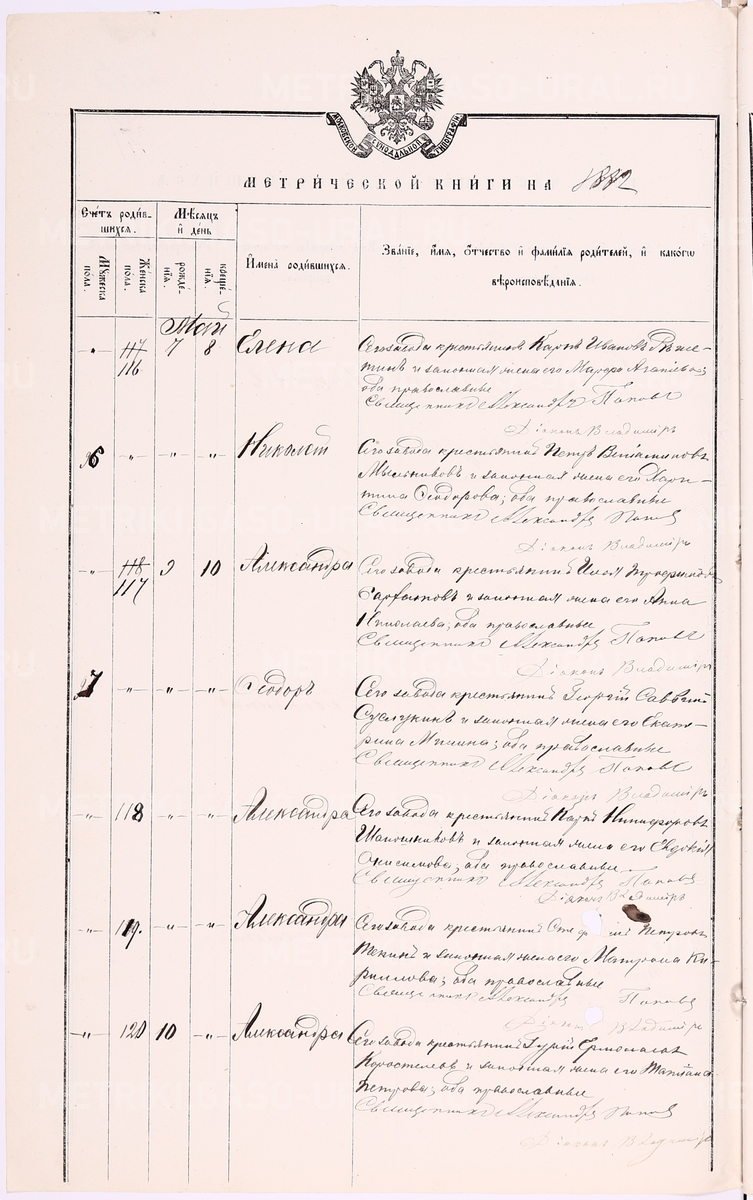 МОСКОВСКОЙ СѴНОДАЛЬНОЙ ТИПОГРАФІИ
МЕТРИ́ЧЕСКОЙ КНИ́ГИ НА 1882
Сче́тъ роди́в-
шихся.
Мꙋ́жеска пола.
Же́нска пола.
Мѣсяцъ
и де́нь
рожде́-
нїя.
креще́-
нїя.
И҆мена̀ роди́вшихся.
Зва́нїе, и҆́мя, ѻ҆́тчество и҆ фами́лїя роди́телей, и҆ како́гѡ
вѣроисповѣ́данїя.
Май
" 117 7 8 Елена Сего завода крестьянинъ Карпъ Ивановъ
116 и законная жена его Марфа
оба православные
Священникъ Александръ Поповъ
Діаконъ Владиміръ
96 " " " Николай Сего завода крестьянинъ Петръ Веніаминовъ
Мыльниковъ и законная жена его Хари-
тина Ѳеодорова; оба православные
Священникъ Александръ Поповъ
Діаконъ Владиміръ
" 118 9 10 Александра Сего завода крестьянинъ
117 и законная жена его Анна
Николаева; оба православные
Священникъ Александръ Поповъ
Діаконъ Владиміръ
97 " " " Ѳеодоръ Сего завода крестьянинъ Георгій Саввинъ
и законная жена его Екате-
рина оба православные
Священникъ Александръ Поповъ
Діаконъ Владиміръ
" 118 " " Александра Сего завода крестьянинъ Карпъ Никифоровъ
Шапошниковъ и законная жена его Евдокія
Онисимова; оба православные
Священникъ Александръ Поповъ
Діаконъ Владиміръ
" 119. " " Александра Сего завода крестьянинъ Петровъ
и законная жена его Матрона Ки-
риллова; оба православные
Священникъ Александръ Поповъ
Діаконъ Владиміръ
" 120 10 " Александра Сего завода крестьянинъ Гурій Ермолаевъ
Коростелевъ и законная жена его Татіана
Петрова; оба православные
Священникъ Александръ Поповъ
Діаконъ Владиміръ